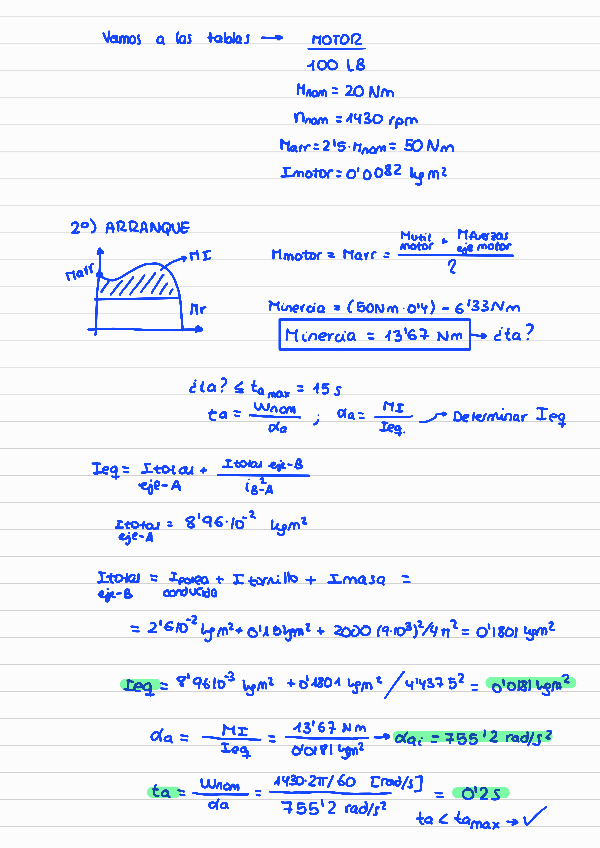 Vamos a las tablas → MOTOR
100 LB
Mnom = 20 Nm
nnom = 1430 rpm
Marr = 2'5·Mnom = 50 Nm
Imotor = 0'0082 kgm²
2º) ARRANQUE
Marr
MI
Mr
Mmotor = Marr = (Mutil motor + Mfuerzas eje motor) / η
Minercia = (50Nm·0'4) - 6'33Nm
Minercia = 13'67 Nm → ¿ta?
¿ta? ≤ ta max = 15 s
ta = ωnom / αa ; αa = MI / Ieq. → Determinar Ieq
Ieq = Itotal eje-A + Itotal eje-B / i²B-A
Itotal eje-A = 8'96·10⁻² kgm²
Itotal eje-B = Ipolea conducida + I tornillo + I masa =
= 2'6 10⁻² kgm² + 0'15 kgm² + 2000 (9·10³)²/4π² = 0'1801 kgm²
Ieq = 8'96 10⁻³ kgm² + 0'1801 kgm² / 4'4375² = 0'0181 kgm²
αa = MI / Ieq = 13'67 Nm / 0'0181 kgm² → αai = 755'2 rad/s²
ta = ωnom / αa = 1430·2π/60 [rad/s] / 755'2 rad/s² = 0'2s
ta < ta max → ✓